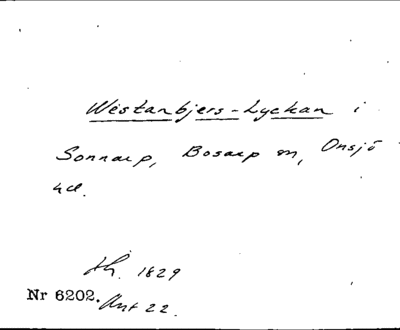 Westanbjers-Lyckan i
Sonnarp, Bosarp sn, Onsjö
hd.
Ah. 1829
Nr 6202. Ant 22.